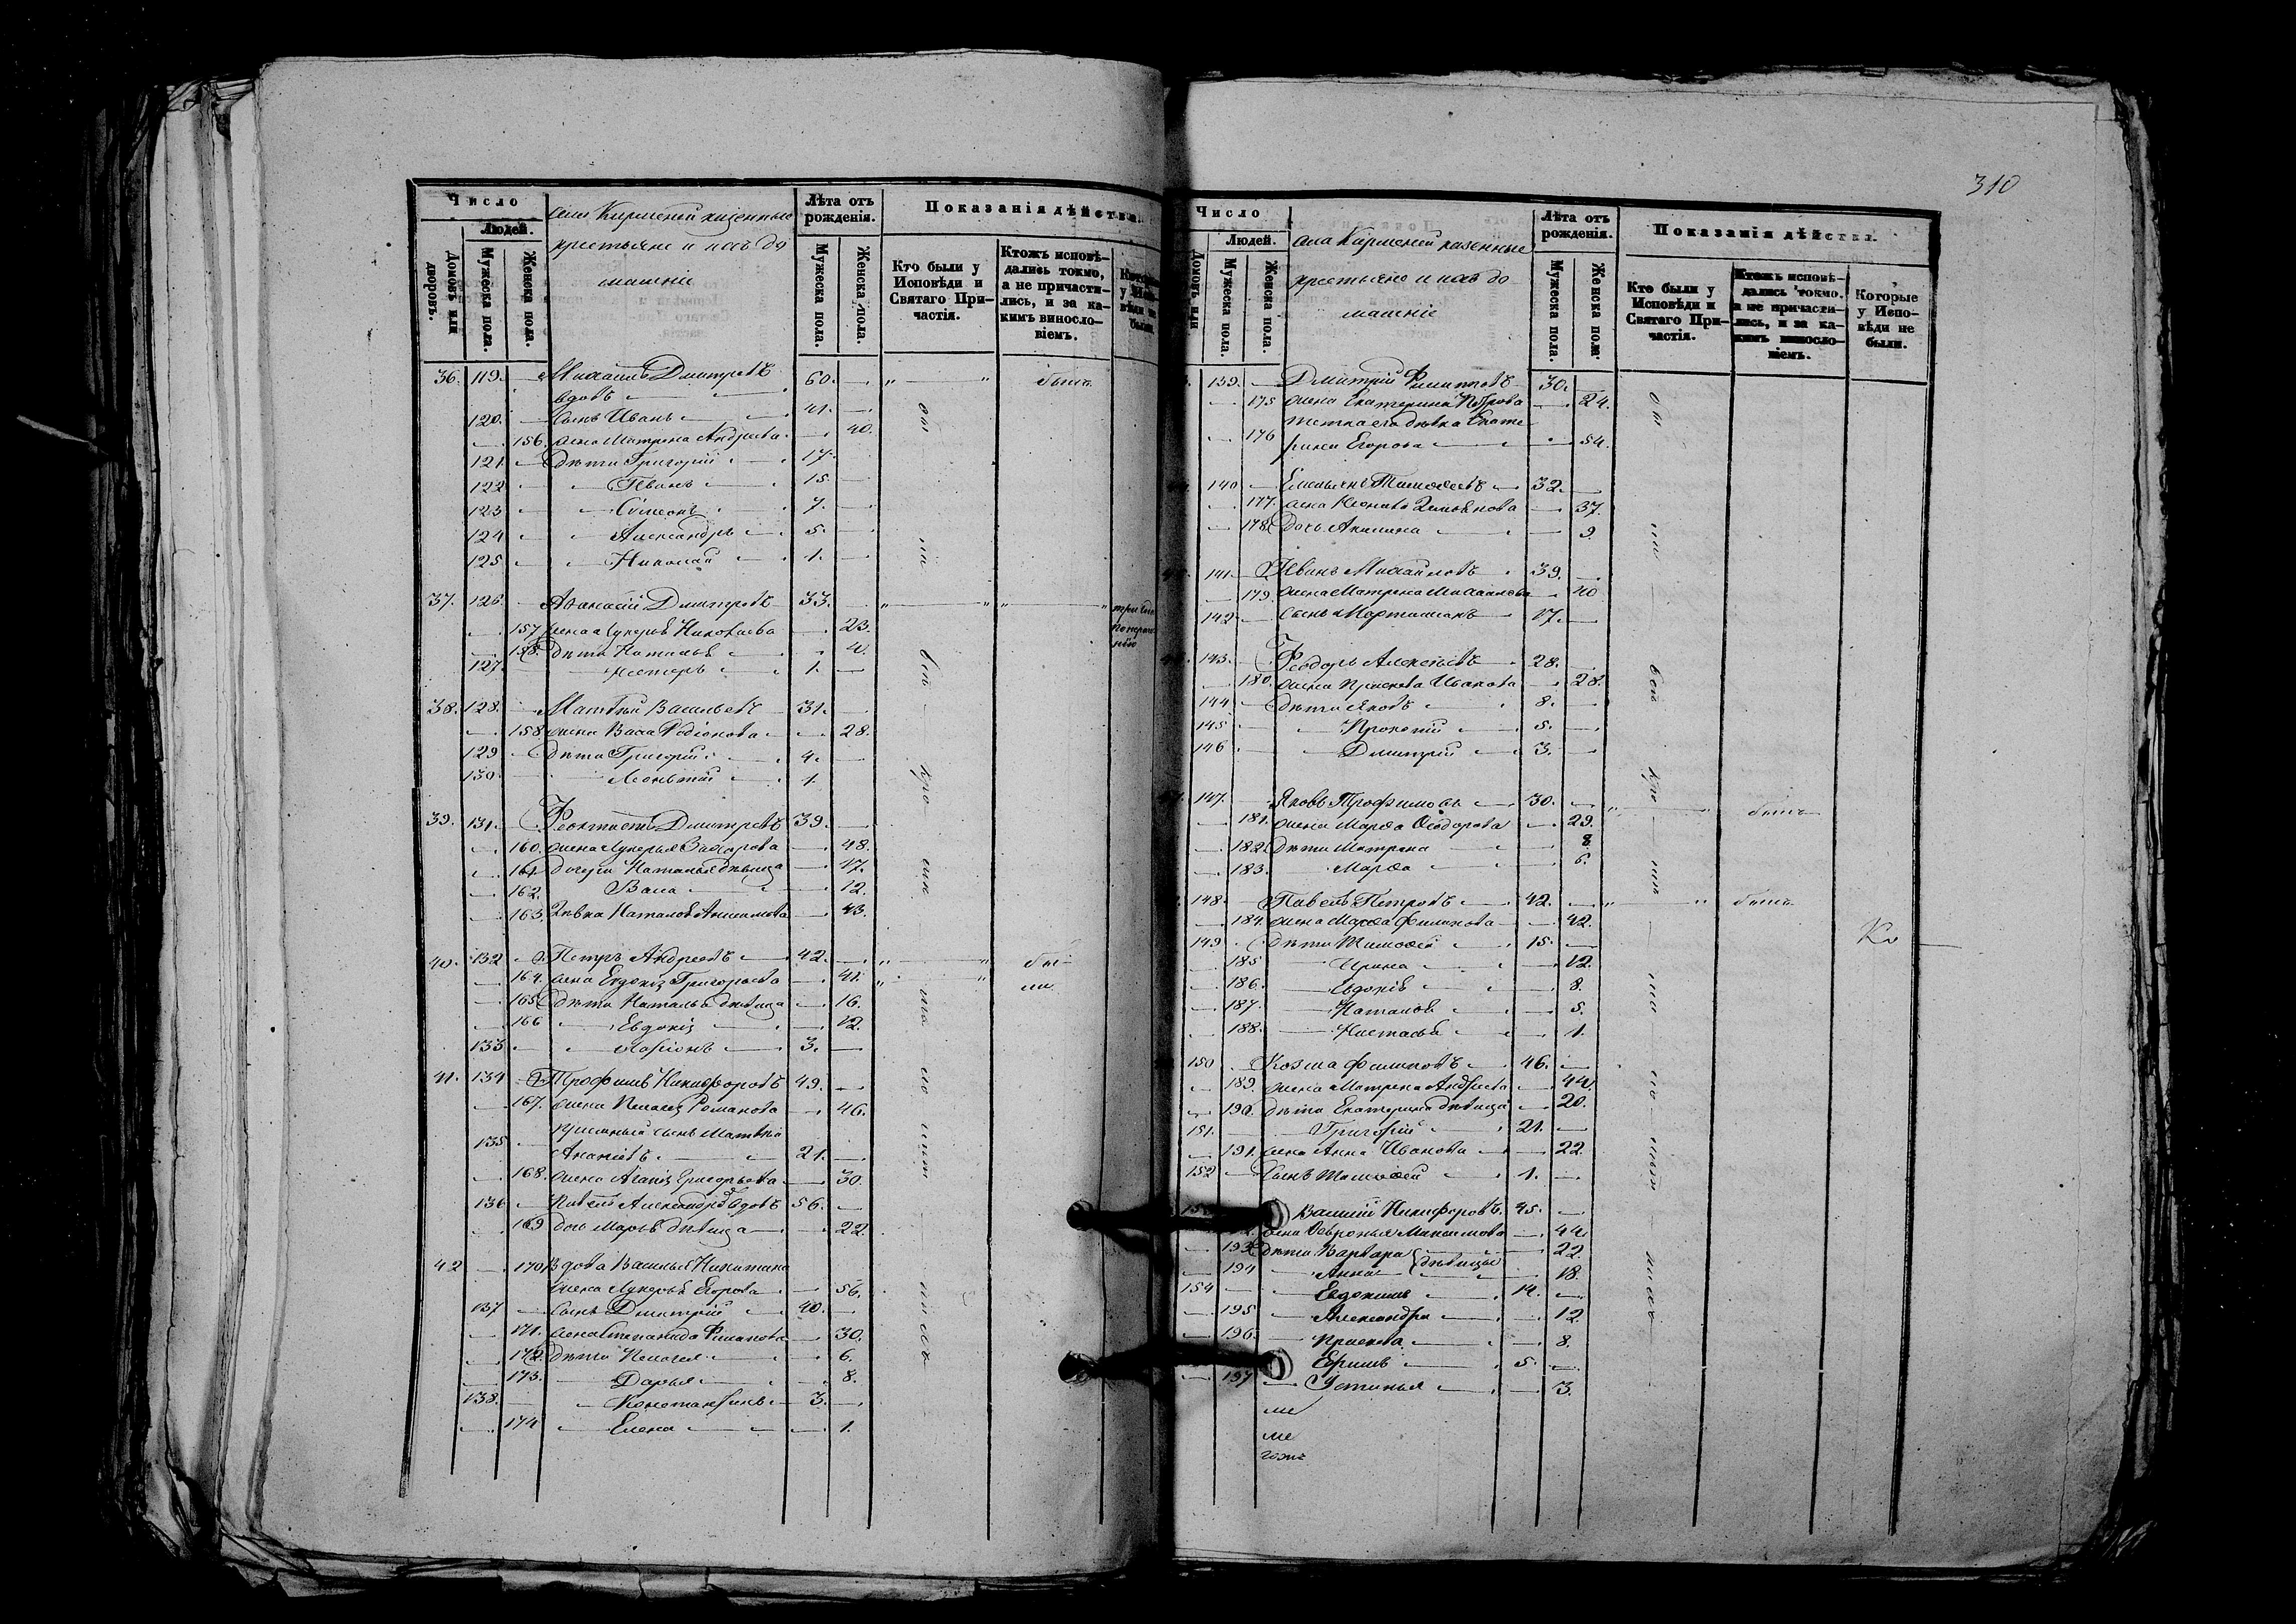 Число
Людей.
Домовъ или дворовъ.
Мужеска пола.
Женска пола.
села казенные
крестьяне и ихъ до
машніе
Лѣта отъ рожденія.
Мужеска пола.
Женска пола.
Показанія дѣйства.
Кто были у Исповѣди и Святаго При-частія.
Ктожъ исповѣ-дались токмо, а не причасти-лись, и за ка-кимъ винословіемъ.
36. 119. Михаилъ Дмитревъ
вдовъ 60. былъ
120. сынъ Иванъ 41.
156. жена Матрена Андреева 40.
121. Дѣти Григорій 17.
122 Иванъ 15.
123 Симеонъ 7.
124 Александръ 5.
125 Николай 1.
37. 126. Аѳанасій Дмитревъ 33.
157 жена Лукерья Николаева 23.
158. Дѣти Наталья 4.
127. Несторъ 1.
38. 128. Матвѣй Васильевъ 31.
158 жена Васса Родіонова 28.
129 Дѣти Григорій 4.
130 Леонтій 1.
39. 131. Феоктистъ Дмитревъ 39.
160. жена Лукерья Захарова 48.
161. Дочери Наталья дѣвица 17.
162. Васса 12.
163. Дѣвка Наталья Анисимова 43.
40. 132 Петръ Андреевъ 42. бы-
164. жена Евдокія Григорьева 41. ли
165 Дѣти Наталья дѣвица 16.
166 Евдокія 12.
133 Ларіонъ 3.
41. 134 Трофимъ Никифоровъ 49.
167. жена Пелагея Романова 46.
135 пріемный сынъ Матвѣй
Ананьевъ 21.
168. жена Агапія Григорьева 30.
136 Александровъ вдовъ 56.
169 дочь Марья дѣвица 22.
42 170 Вдова Василья Никитина
жена Лукерья Егорова 56.
137 сынъ Дмитрій 40.
171. жена Степанида Филипова 30.
172. Дѣти Пелагея 6.
173. Дарья 8.
138. Константинъ 3.
174 Елена 1.
310
Число
Людей.
Домовъ или
Мужеска пола.
Женска пола.
села казенные
крестьяне и ихъ до
машніе
Лѣта отъ рожденія.
Мужеска пола.
Женска пола.
Показанія дѣйства.
Кто были у Исповѣди и Святаго При-частія.
Ктожъ исповѣ-дались токмо, а не причасти-лись, и за ка-кимъ винословіемъ.
Которые у Испо-вѣди не были.
139. Дмитрій Филиповъ 30.
175 жена Екатерина Петрова 24.
тетка его дѣвка Екате
176 рина Егорова 54.
140. Емельянъ Тимофеевъ 32.
177. жена Ксенія Демьянова 37.
178. Дочь Акилина 9.
141. Иванъ Михайловъ 39.
179. жена Матрена Михайлова 40
142. сынъ Мартиніанъ 17.
143. Феодоръ Алексѣевъ 28.
180. жена Прасковья Иванова 28.
144 Дѣти Яковъ 8.
145 Прокопій 5.
146 Дмитрій 3.
147. Яковъ Трофимовъ 30. былъ
181. жена Марѳа Ѳеодорова 29.
182 Дѣти Матрена 8.
183. Марѳа 6.
148. Павелъ Петровъ 42. былъ
184. жена Марѳа Филипова 42.
149 Дѣти Тимоѳей 15.
185 Ирина 12.
186. Евдокія 8.
187. Наталья 5.
188. Настасья 1.
150 Козма Филиповъ 46.
189. жена Матрена Андреева 44.
190. Дѣти Екатерина дѣвица 20.
151. Григорій 21.
191. жена Анна Иванова 22.
152 Сынъ Тимоѳей 1.
Василій Никифоровъ 45.
жена Ѳевронья Максимова 44
193. Дѣти Варвара дѣвицы 22.
194 Анна 18.
154 Евдокимъ 14.
195 Александра 12
196. Прасковья 8.
Ефимъ 5.
197 Устинья 3.